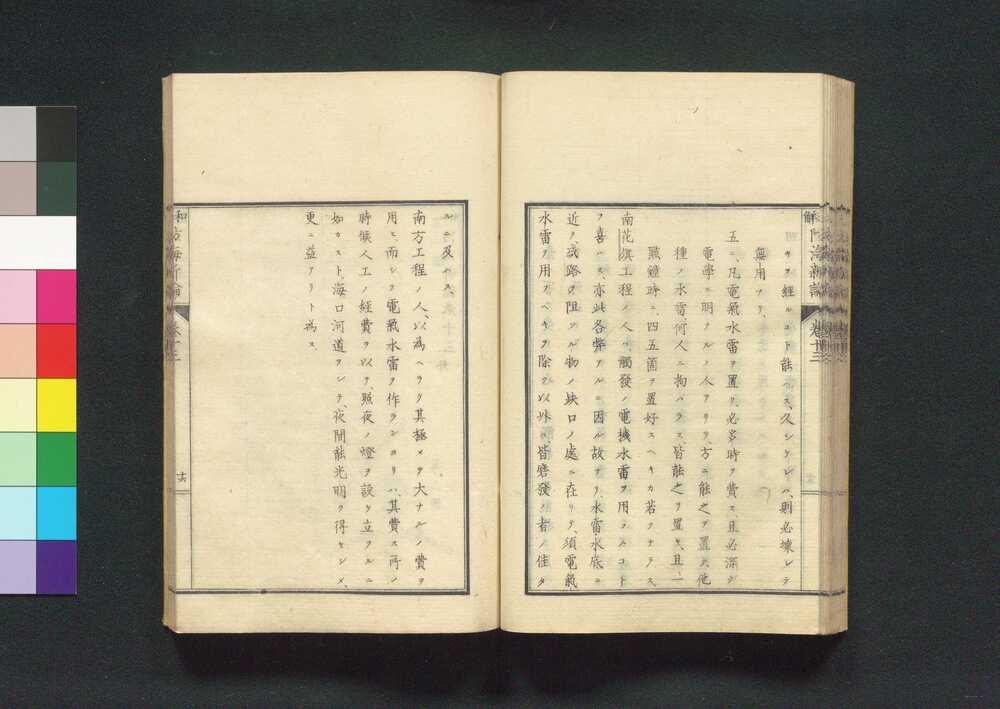 キヲ經ルコト能ハス、久シケレバ、則必壊レテ
無用ナリ、
五、凡電氣水雷ヲ置ク、必多時ヲ費ス、且必深ク
電學ニ明ナルノ人アリテ、方ニ能之ヲ置ク、他
種ノ水雷何人ニ拘ハラス、皆能之ヲ置キ、且一
點鐘時ニ、四五箇ヲ置好スヘキカ若クナラス、
南花旗工程ノ人ハ、觸發ノ電機水雷ヲ用フルコト
ヲ喜ハス、亦此各弊アルニ因ル故ナリ、水雷水底ニ
近ク、或路ヲ阻ツル物ノ缺口ノ處ニ在リテ、須電氣
水雷ヲ用フベキヲ除クノ以外、皆磨發ノ者ノ佳ナ
ルニ及ハス、
南方工程ノ人、以為ヘラク其極メテ大ナルノ費ヲ
用ヒ、而シテ電氣水雷ヲ作ランヨリハ、其費ス所ノ
時候人工ノ經費ヲ以テ、照夜ノ燈ヲ設ケ立ツルニ
如カスト、海口河道ヲシテ、夜間能光明ヲ得セシメ、
更ニ益アリト為ス、
和
解
防海新論
卷十三
十六